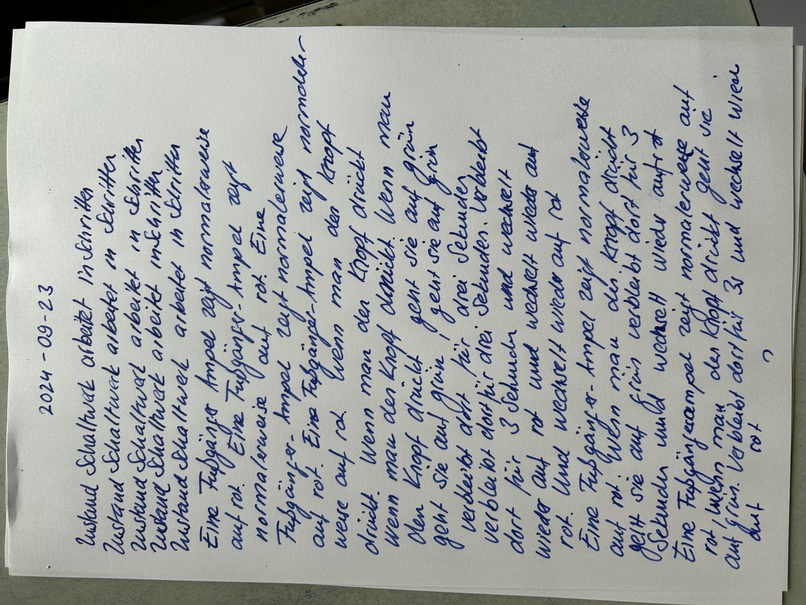 2024-09-23
Zustand Schaltwerk arbeitet in Schritten
Zustand Schaltwerk arbeitet in Schritten
Zustand Schaltwerk arbeitet in Schritten
Zustand Schaltwerk arbeitet in Schritten
Zustand Schaltwerk arbeitet in Schritten
Eine Fußgänger Ampel zeigt normalerweise
auf rot. Eine Fußgänger-Ampel zeigt
normalerweise auf rot. Eine
Fußgänger-Ampel zeigt normalerweise
auf rot. Eine Fußgänger-Ampel zeigt normaler-
weise auf rot. Wenn man den Knopf
drückt. Wenn man den Knopf drückt
Wenn man den Knopf drückt. Wenn man
den Knopf drückt geht sie auf grün
geht sie auf grün, geht sie auf grün
verbleibt dort für drei Sekunden
verbleibt dort für drei Sekunden. Verbleibt
dort für 3 Sekunden und wechselt
wieder auf rot und wechselt wieder auf
rot. Und wechselt wieder auf rot
Eine Fußgänger-Ampel zeigt normalerweise
auf rot. Wenn man den Knopf drückt
geht sie auf grün verbleibt dort für 3
Sekunden und wechselt wieder auf rot
Eine Fußgängerampel zeigt normalerweise auf
rot, wenn man den Knopf drückt geht sie
auf grün. Verbleibt dort für 3s und wechselt wieder
auf rot